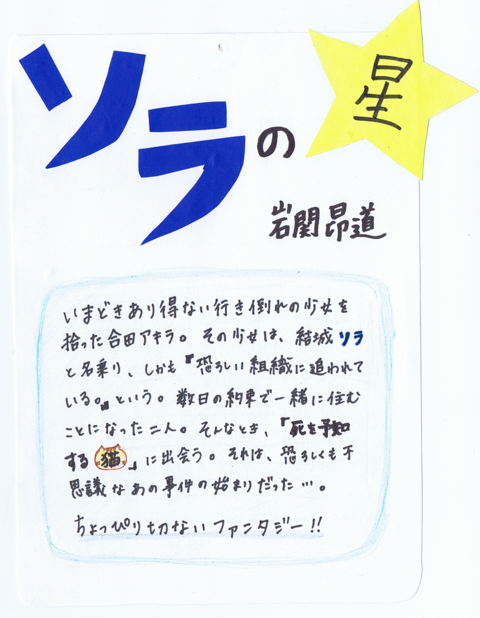 ソラの星
岩関昂道
いまどきあり得ない行き倒れの少女を
拾った合田アキラ。その少女は、結城ソラ
と名乗り、しかも『恐ろしい組織に追われて
いる。』という。数日の約束で一緒に住む
ことになった二人。そんなとき、「死を予知
する猫」に出会う。それは、恐ろしくも不
思議なあの事件の始まりだった…。
ちょっぴり切ないファンタジー!!